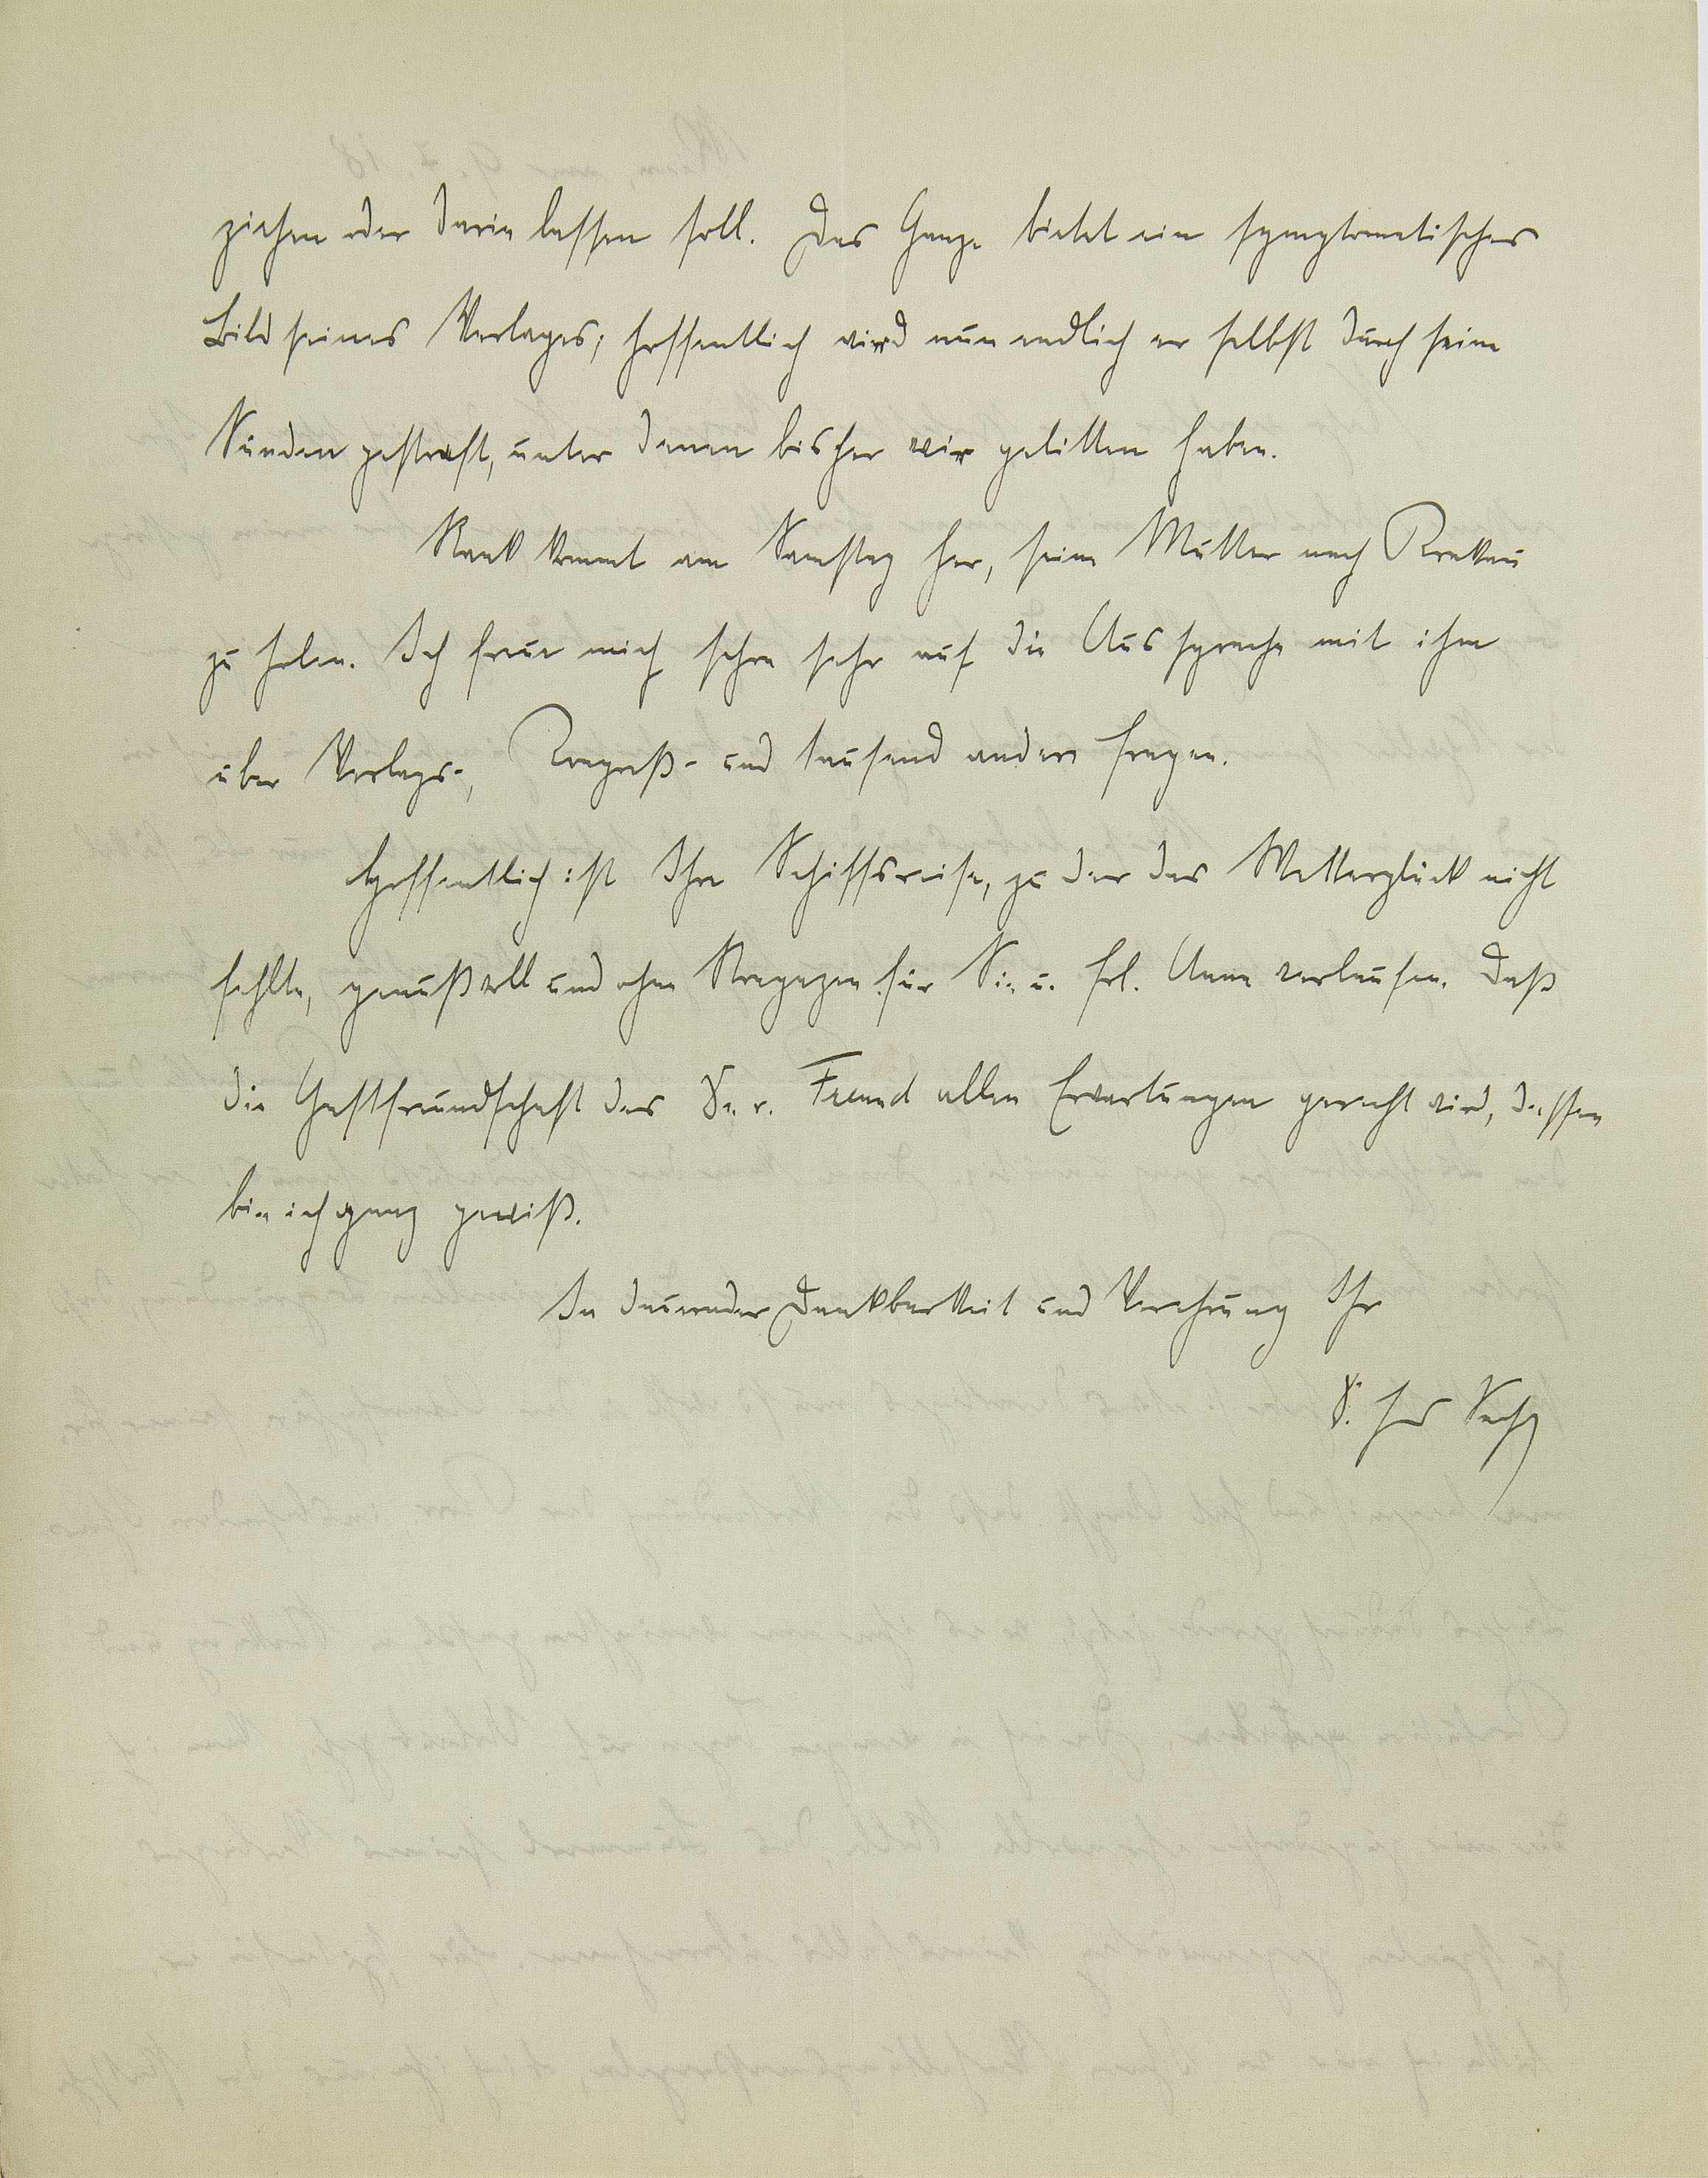 ziehen oder darin lassen soll. Das Ganze bietet ein symptomatisches
Bild seines Verlages; hoffentlich wird nun endlich er selbst durch seine
Sünden gestraft, unter denen bisher wir gelitten haben.
Rank kommt am Samstag her, seine Mutter nach Krakau
zu holen. Ich freue mich schon sehr auf die Aussprache mit ihm
über Verlags-, Kongreß- und tausend andere Fragen.
Hoffentlich ist Ihre Schiffsreise, zu der das Wetterglück nicht
fehlte, genußvoll und ohne Strapazen für Sie u. Frl. Anna verlaufen. Daß
die Gastfreundschaft des Dr. v. Freund allen Erwartungen gerecht wird, dessen
bin ich ganz gewiß.
In dauernder Dankbarkeit und Verehrung Ihr
Dr. Hns Sachs